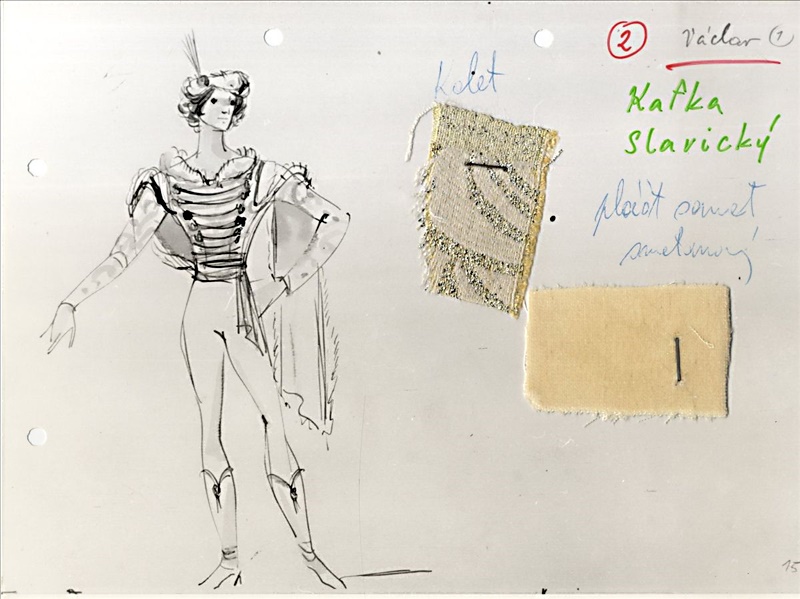 ② Václav ①
Kolet
Kafka
Slavický
plášť samet
smetanový
15